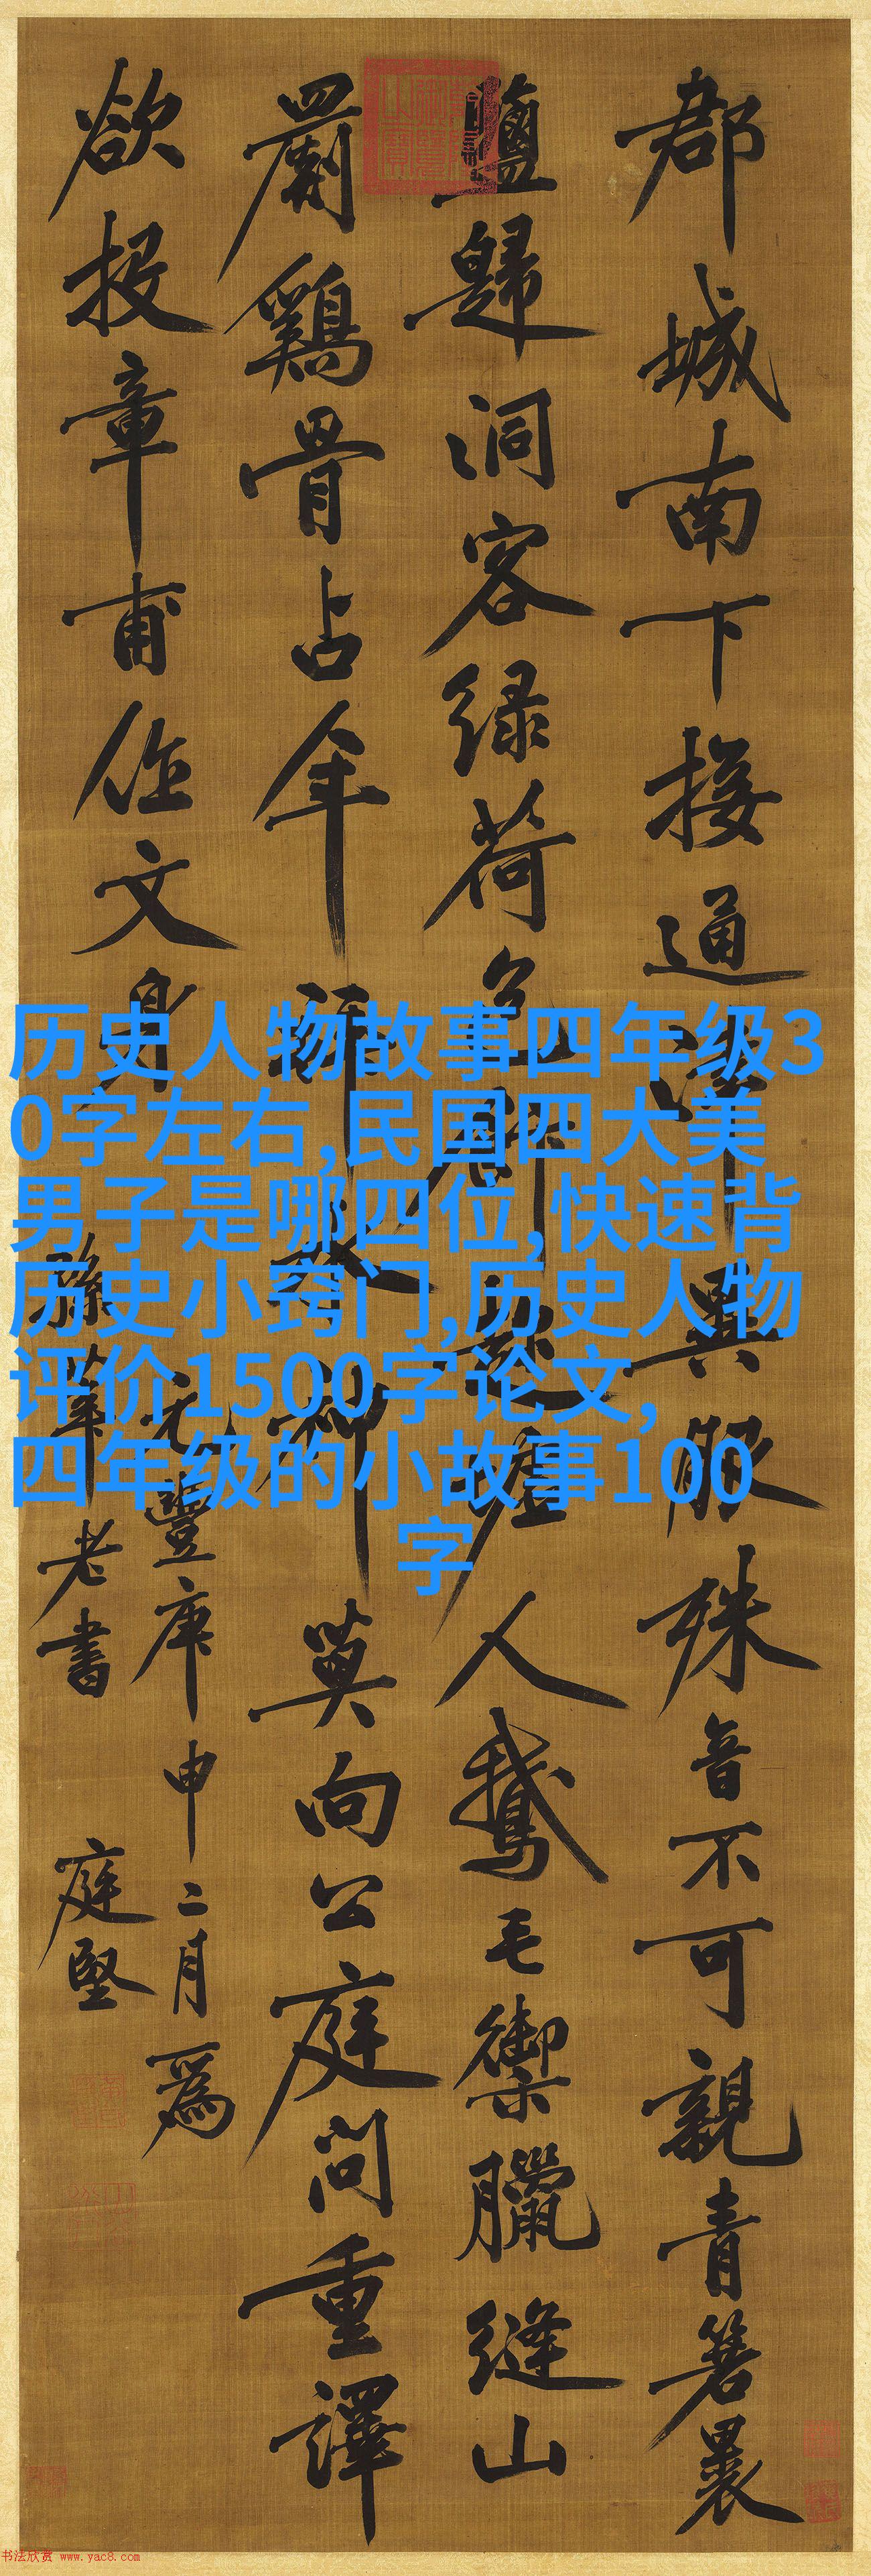 郡城南下接通津異服殊音不可親青箬裹
鹽歸洞客緑荷包飯趁虛人鵝毛禦臘縫山
罽鷄骨占年拜水神莫向公庭問重譯
欲投章甫作文身
元豐庚申二月爲
孫莘老書 庭堅
历史人物故事四年级3
0字左右,民国四大美
男子是哪四位,快速背
历史小窍门,历史人物
评价1500字论文,
四年级的小故事100
字
书法欣赏 www.yac8.com